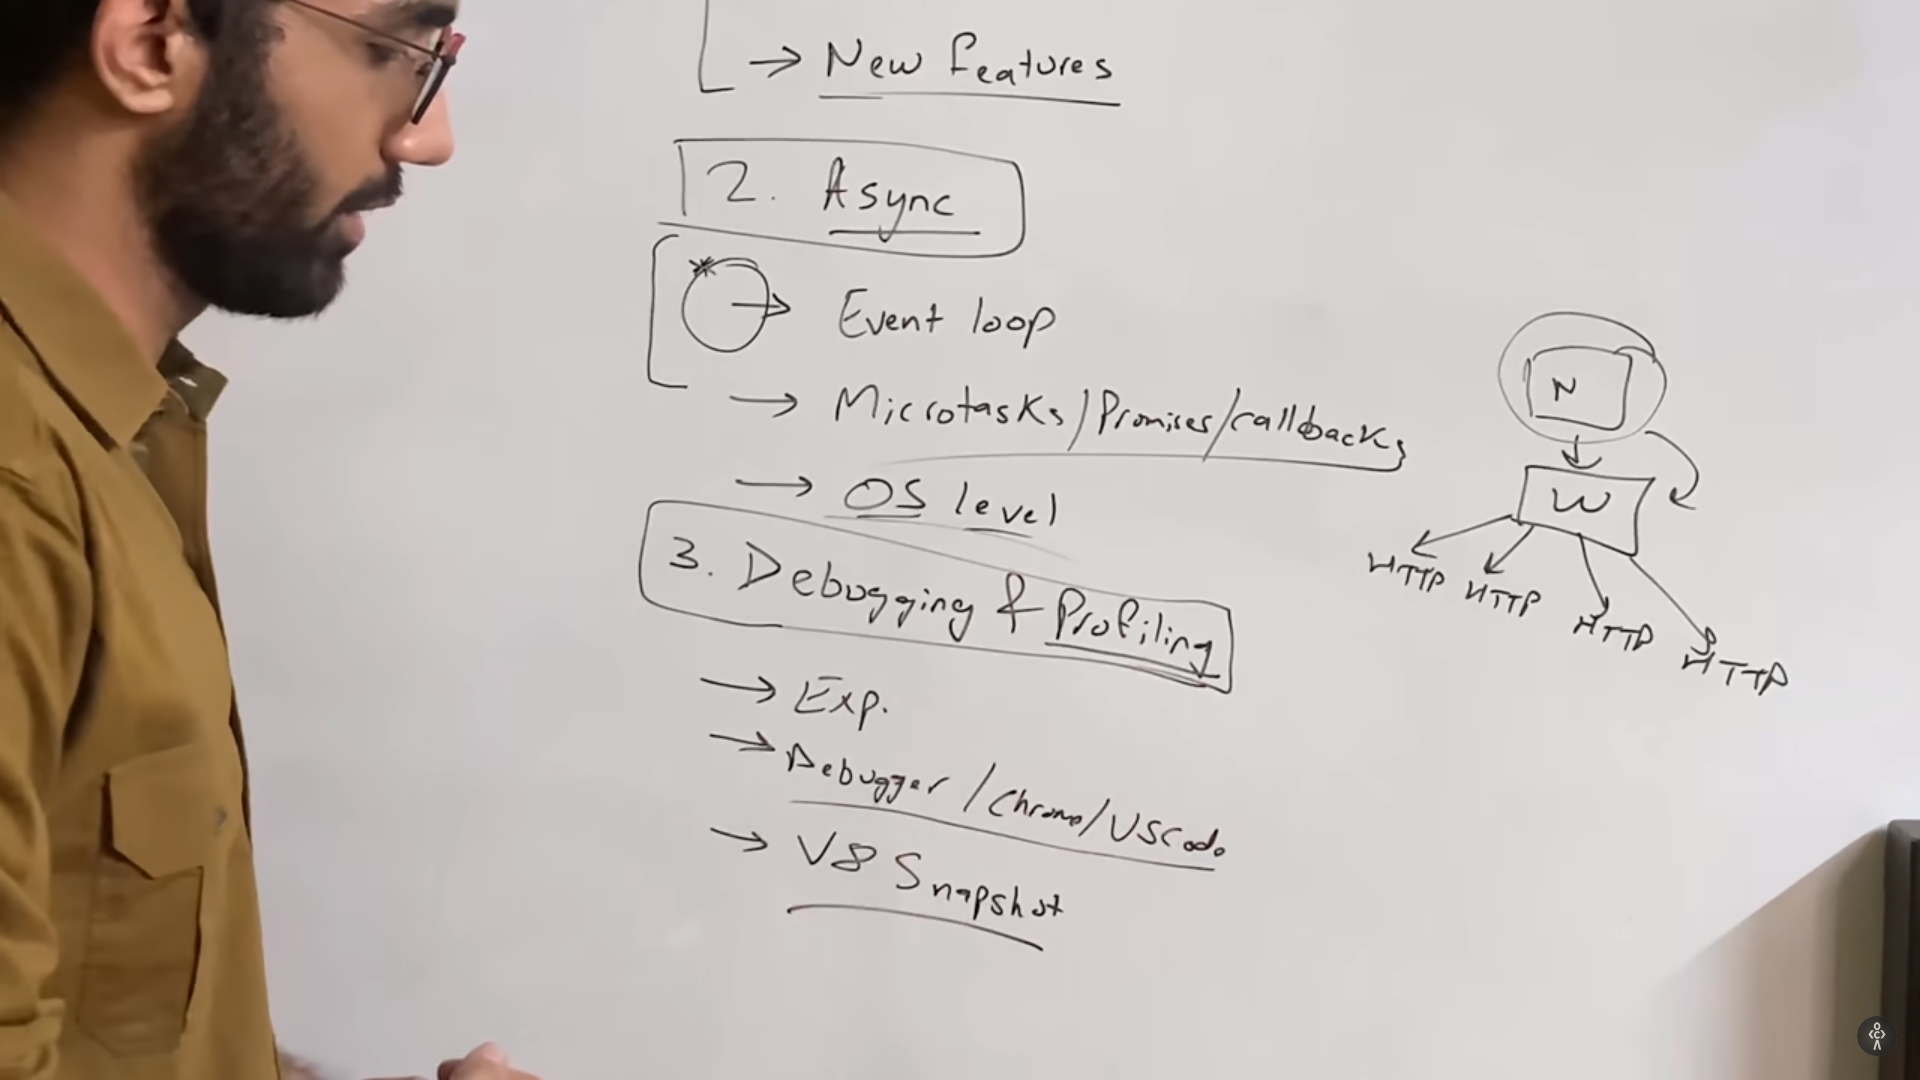 → New features
2. Async
→ Event loop
→ Microtasks/Promises/callbacks
→ OS level
3. Debugging & Profiling
→ Exp.
→ Debugger/Chrome/VSCode
→ V8 Snapshot
N
W
HTTP HTTP HTTP HTTP